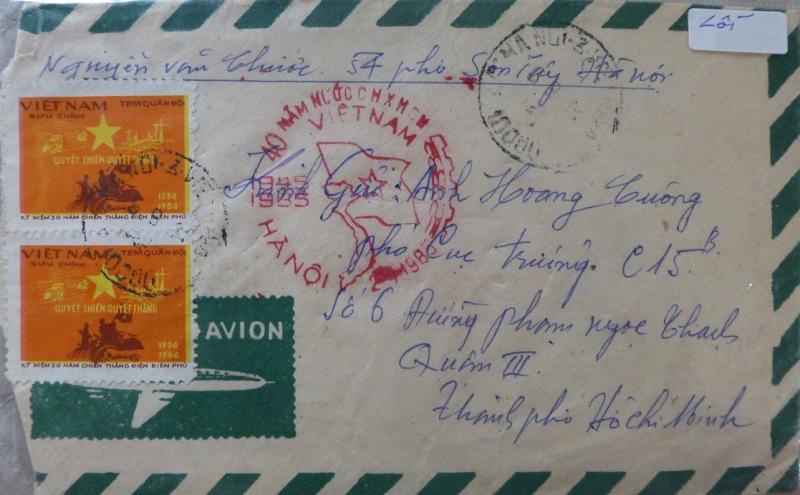 Lỗi
Nguyễn văn Chước. 54 phố Sơn Tây Hà nội
VIỆT NAM TEM QUÂN ĐỘI
BƯU CHÍNH
QUYẾT CHIẾN QUYẾT THẮNG
1954
1984
KỶ NIỆM 30 NĂM CHIẾN THẮNG ĐIỆN BIÊN PHỦ
VIỆT NAM TEM QUÂN ĐỘI
BƯU CHÍNH
QUYẾT CHIẾN QUYẾT THẮNG
1954
1984
KỶ NIỆM 30 NĂM CHIẾN THẮNG ĐIỆN BIÊN PHỦ
40 NĂM NƯỚC CHXHCN
VIỆTNAM
1945
1985
HÀNỘI
HA NOI
10000
Kính Gửi: Anh Hoàng Cường
phó Cục trưởng. C15B
Số 6 Đường phạm ngọc Thạch
Quận III
Thành phố Hồ Chí Minh
AVION